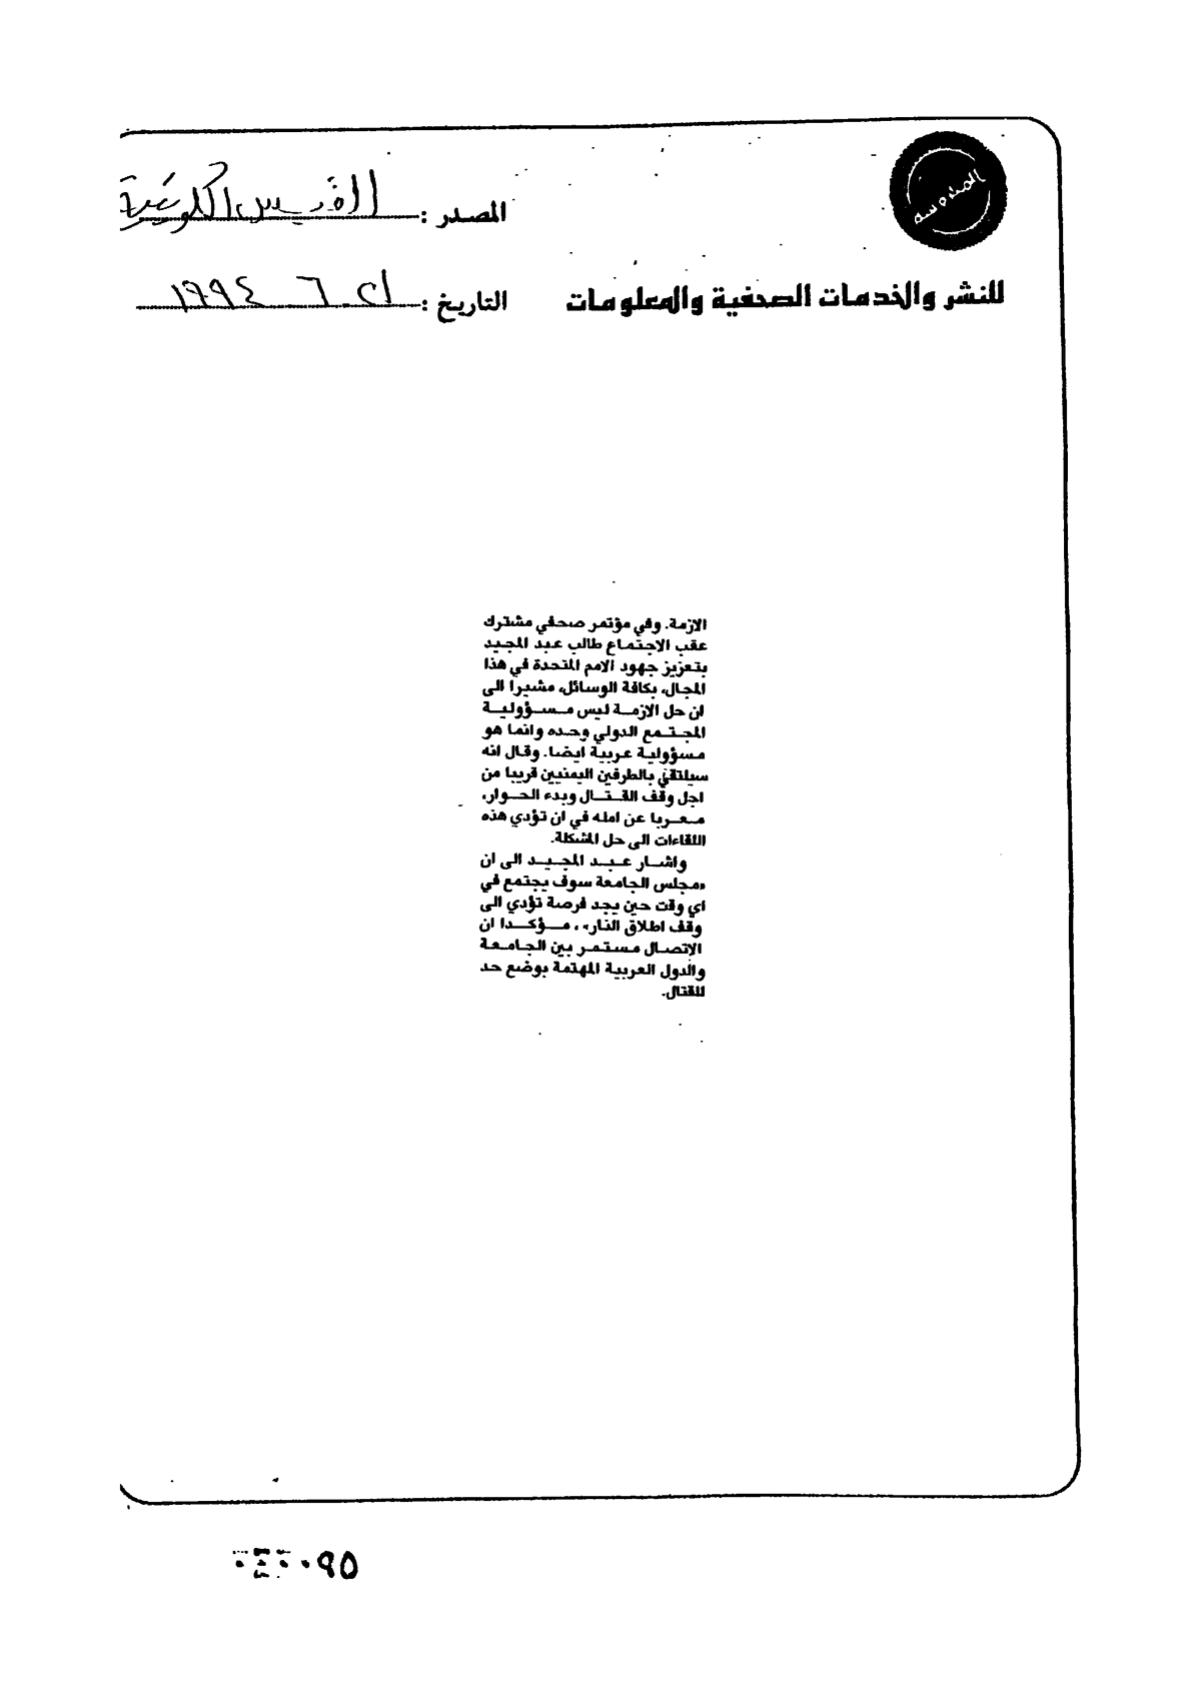 المصدر : القبس الكويتية
للنشر والخدمات الصحفية والمعلومات
التاريخ : ٢١ ٦ ١٩٩٤
الازمة. وفي مؤتمر صحفي مشترك
عقب الاجتماع طالب عبد المجيد
بتعزيز جهود الامم المتحدة في هذا
المجال، بكافة الوسائل، مشيرا الى
ان حل الازمة ليس مسؤولية
المجتمع الدولي وحده وانما هو
مسؤولية عربية ايضا. وقال انه
سيلتقي بالطرفين اليمنيين قريبا من
اجل وقف القتال وبدء الحوار،
معربا عن امله في ان تؤدي هذه
اللقاءات الى حل المشكلة.
واشار عبد المجيد الى ان
«مجلس الجامعة سوف يجتمع في
اي وقت حين يجد فرصة تؤدي الى
وقف اطلاق النار»، مؤكدا ان
الاتصال مستمر بين الجامعة
والدول العربية المهتمة بوضع حد
للقتال.